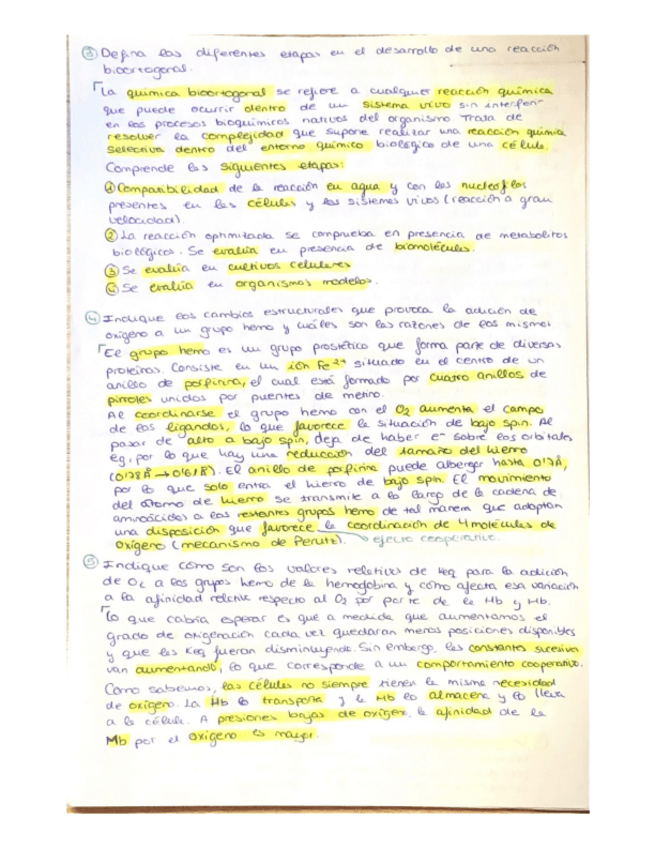 ③ Defina las diferentes etapas en el desarrollo de una reacción
bioortogonal.
La química bioortogonal se refiere a cualquier reacción química
que puede ocurrir dentro de un sistema vivo sin interferir
en los procesos bioquímicos nativos del organismo. Trata de
resolver la complejidad que supone realizar una reacción química
selectiva dentro del entorno químico biológico de una célula.
Comprende las siguientes etapas:
① Compatibilidad de la reacción en agua y con los nucleófilos
presentes en las células y los sistemas vivos (reacción a gran
velocidad).
② La reacción optimizada se comprueba en presencia de metabolitos
biológicos. Se evalúa en presencia de biomoléculas.
③ Se evalúa en cultivos celulares
④ Se evalúa en organismos modelos.
④ Indique los cambios estructurales que provoca la adición de
oxígeno a un grupo hemo y cuáles son las razones de los mismos
El grupo hemo es un grupo prostético que forma parte de diversas
proteínas. Consiste en un ión Fe²⁺ situado en el centro de un
anillo de porfirina, el cual está formado por cuatro anillos de
pirroles unidos por puentes de metino.
Al coordinarse el grupo hemo con el O₂ aumenta el campo
de los ligandos, lo que favorece la situación de bajo spin. Al
pasar de alto a bajo spin, deja de haber e⁻ sobre los orbitales
eg, por lo que hay una reducción del tamaño del hierro
(0'78Å → 0'61Å). El anillo de porfirina puede albergar hasta 0'7Å,
por lo que solo entra el hierro de bajo spin. El movimiento
del átomo de hierro se transmite a lo largo de la cadena de
aminoácidos a los restantes grupos hemo de tal manera que adoptan
una disposición que favorece la coordinación de 4 moléculas de
oxígeno (mecanismo de Perutz). → efecto cooperativo.
⑤ Indique cómo son los valores relativos de Keq para la adición
de O₂ a los grupos hemo de la hemoglobina y cómo afecta esa variación
a la afinidad relativa respecto al O₂ por parte de la Mb y Hb.
Lo que cabría esperar es que a medida que aumentamos el
grado de oxigenación cada vez quedaran menos posiciones disponibles
y que las Keq fueran disminuyendo. Sin embargo, las constantes sucesivas
van aumentando, lo que corresponde a un comportamiento cooperativo.
Como sabemos, las células no siempre tienen la misma necesidad
de oxígeno. La Hb lo transporta y la Mb lo almacena y lo lleva
a la célula. A presiones bajas de oxígeno, la afinidad de la
Mb por el oxígeno es mayor.